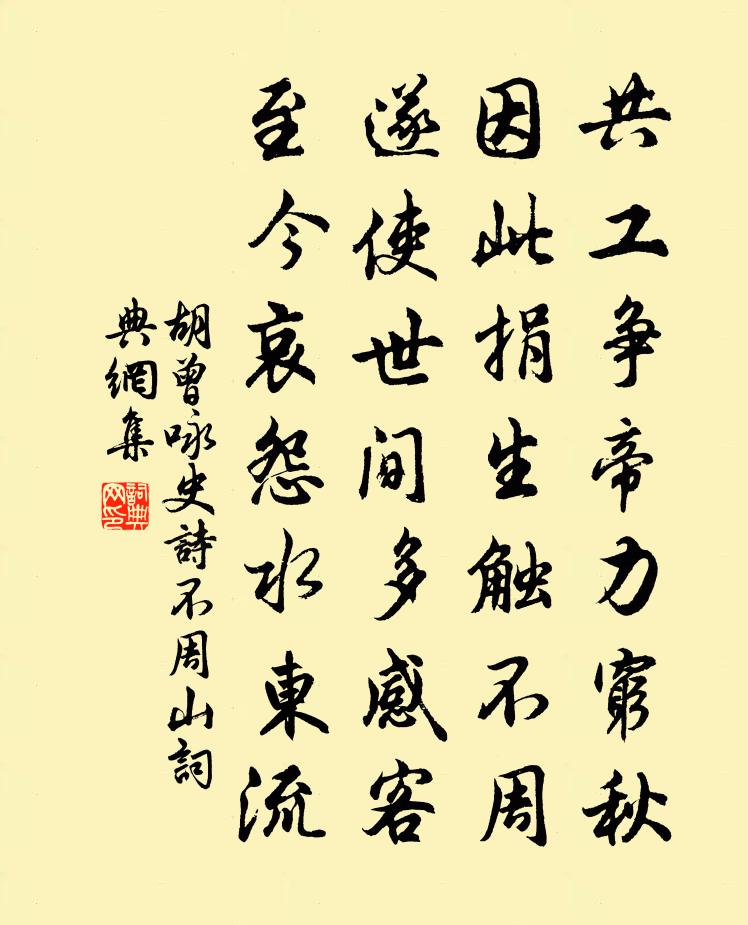 共工争帝力窮秋
因此捐生触不周
遂使世间多感客
至今哀怨水東流
胡曾咏史詩不周山詞
典網集
詞典网印